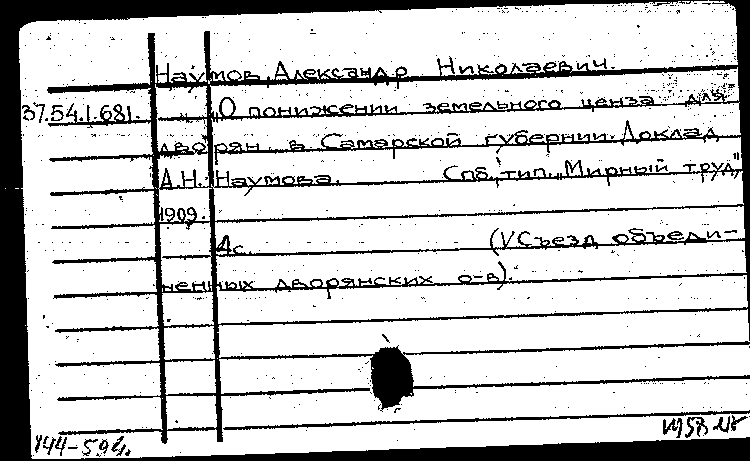 Наумов, Александр Николаевич.
37.54.1.681. „О понижении земельного ценза для
дворян в Самарской губернии. Доклад
А.Н. Наумова. Спб., тип. „Мирный труд",
1909.
4с. (V Съезд объеди-
ненных дворянских о-в).
144-594.